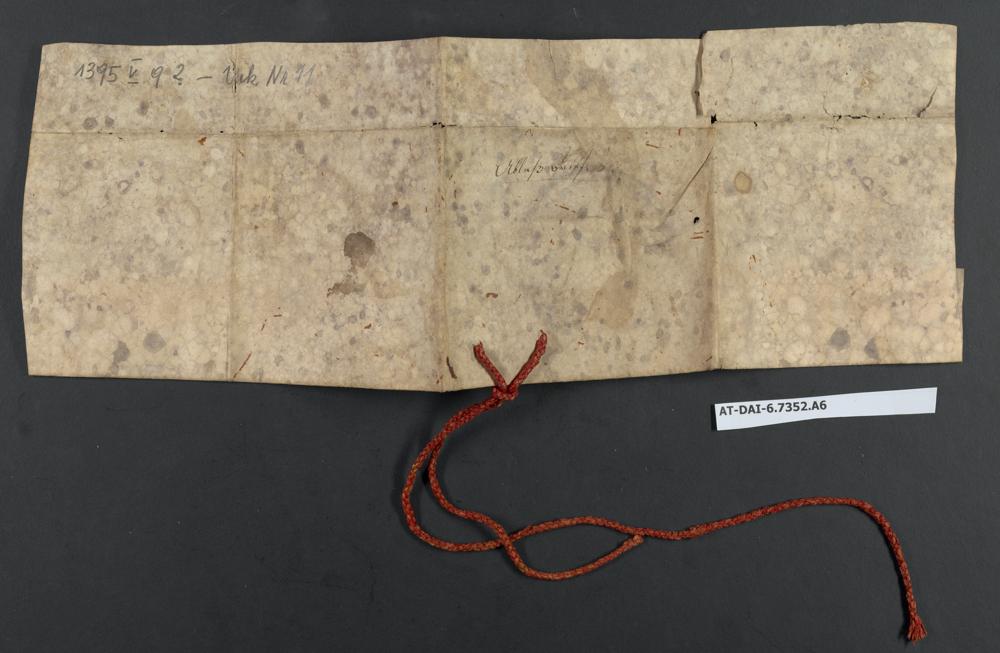 1395 V 9 ? – Urk Nr 11
Ablaß Brief
AT-DAI-6.7352.A6